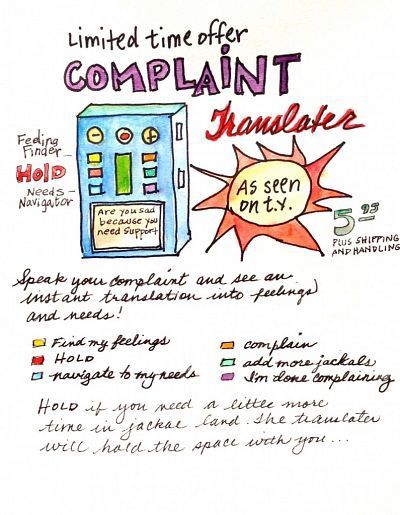 Limited time offer
COMPLAINT
Translater
Feeling
Finder
HOLD
Needs
Navigator
Are you sad
because you
need support
As seen
on t.v.
5.95
PLUS SHIPPING
AND HANDLING
Speak your complaint and see an
instant translation into feelings
and needs!
Find my feelings
HOLD
navigate to my needs
complain
add more jackals
I'm done complaining
HOLD if you need a little more
time in jackal land. The translater
will hold the space with you...